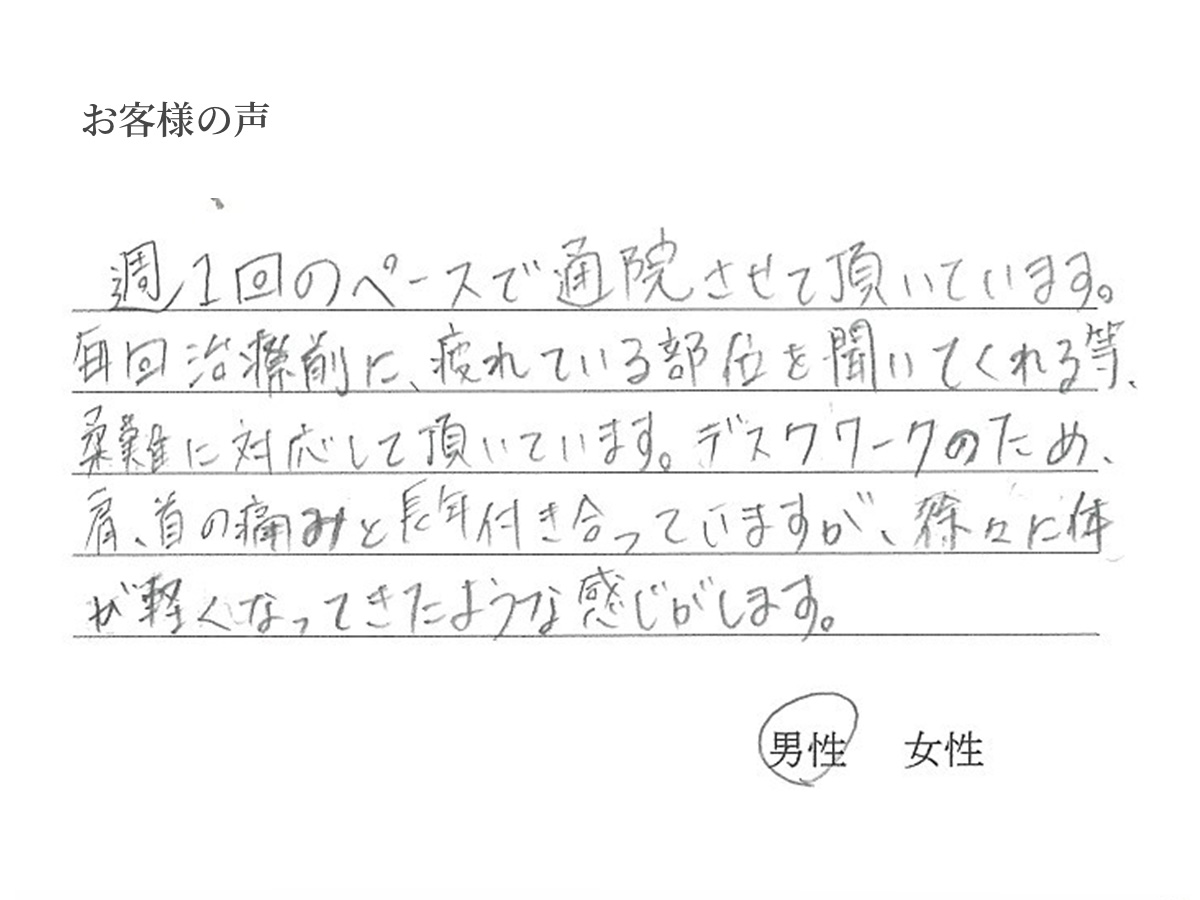 お客様の声
週1回のペースで通院させて頂いています。
毎回治療前に、疲れている部位を聞いてくれる等、
柔難に対応して頂いています。デスクワークのため、
肩、首の痛みと長年付き合っていますが、徐々に体
が軽くなってきたような感じがします。
男性 女性